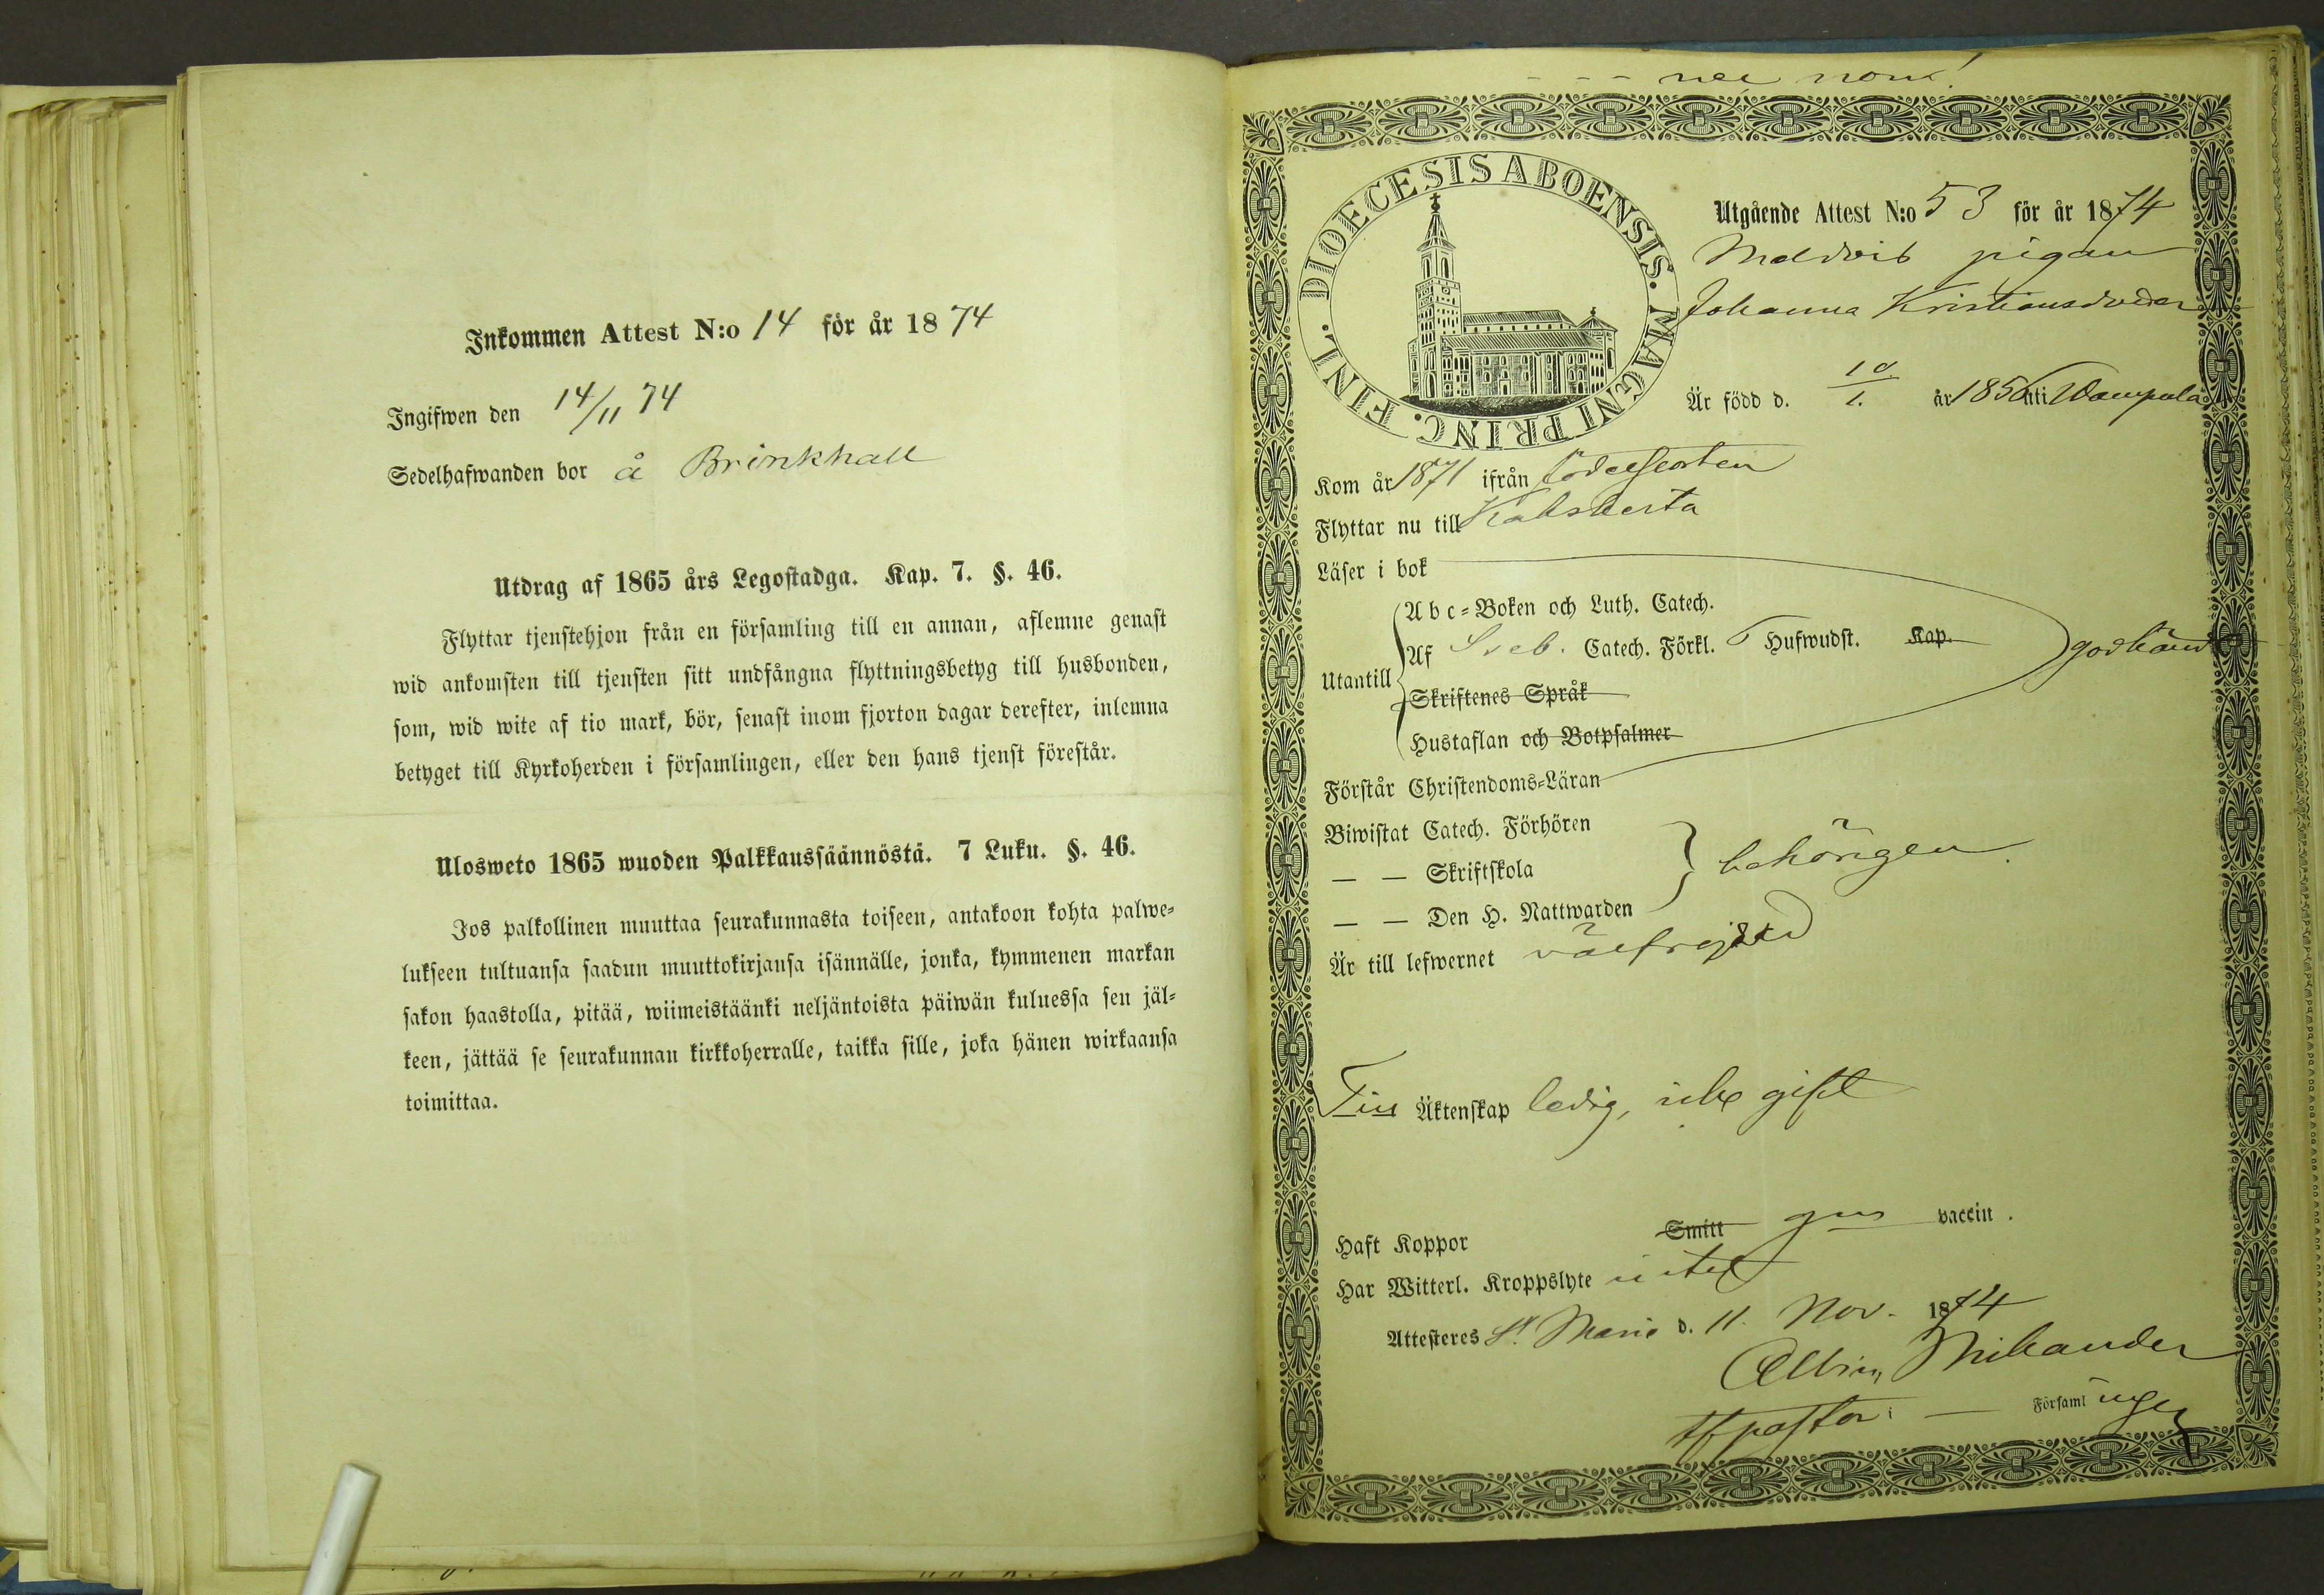 Inkommen Attest N:o 14 för år 1874
Ingifwen den 14/11 74
Sedelhafwanden bor å Brinkhall
Utdrag af 1865 års Legostadga. Kap. 7. §. 46.
Flyttar tjenstehjon från en församling till en annan, aflemne genast
wid ankomsten till tjensten sitt undfångna flyttningsbetyg till husbonden,
som, wid wite af tio mark, bör, senast inom fjorton dagar derefter, inlemna
betyget till Kyrkoherden i församlingen, eller den hans tjenst förestår.
Ulosweto 1865 wuoden Palkkaussäännöstä. 7 Luku. §. 46.
Jos palkollinen muuttaa seurakunnasta toiseen, antakoon kohta palwe-
lukseen tultuansa saadun muuttokirjansa isännälle, jonka, kymmenen markan
sakon haastolla, pitää, wiimeistäänki neljäntoista päiwän kuluessa sen jäl-
keen, jättää se seurakunnan kirkkoherralle, taikka sille, joka hänen wirkaansa
toimittaa.
DIOECESIS ABOENSIS. MAGNI PRINC. FINL.
Utgående Attest N:o 53 för år 1874
pigan
Johanna Kristiansdoder
Är född d. år 1856 uti Wampula
Kom år 1871 ifrån födelseorten
Flyttar nu till Kakskerta
Läser i bok
Abc-Boken och Luth. Catech.
Utantill Af Sveb. Catech. Förkl. Hufwudst. Kap. godkänd
Skriftenes Språk
Hustaflan och Botpsalmer
Förstår Christendoms-Läran
Biwistat Catech. Förhören
— — Skriftskola behörigen
— — Den H. Nattwarden
Är till lefwernet välfrejdad
Till Äktenskap ledig, icke gift
Haft Koppor Smitt gm vaccin.
Har Witterl. Kroppslyte intet
Attesteres St Marie d. 11. Nov. 1874
Albin Mikander
tf pastor i — Församlingen